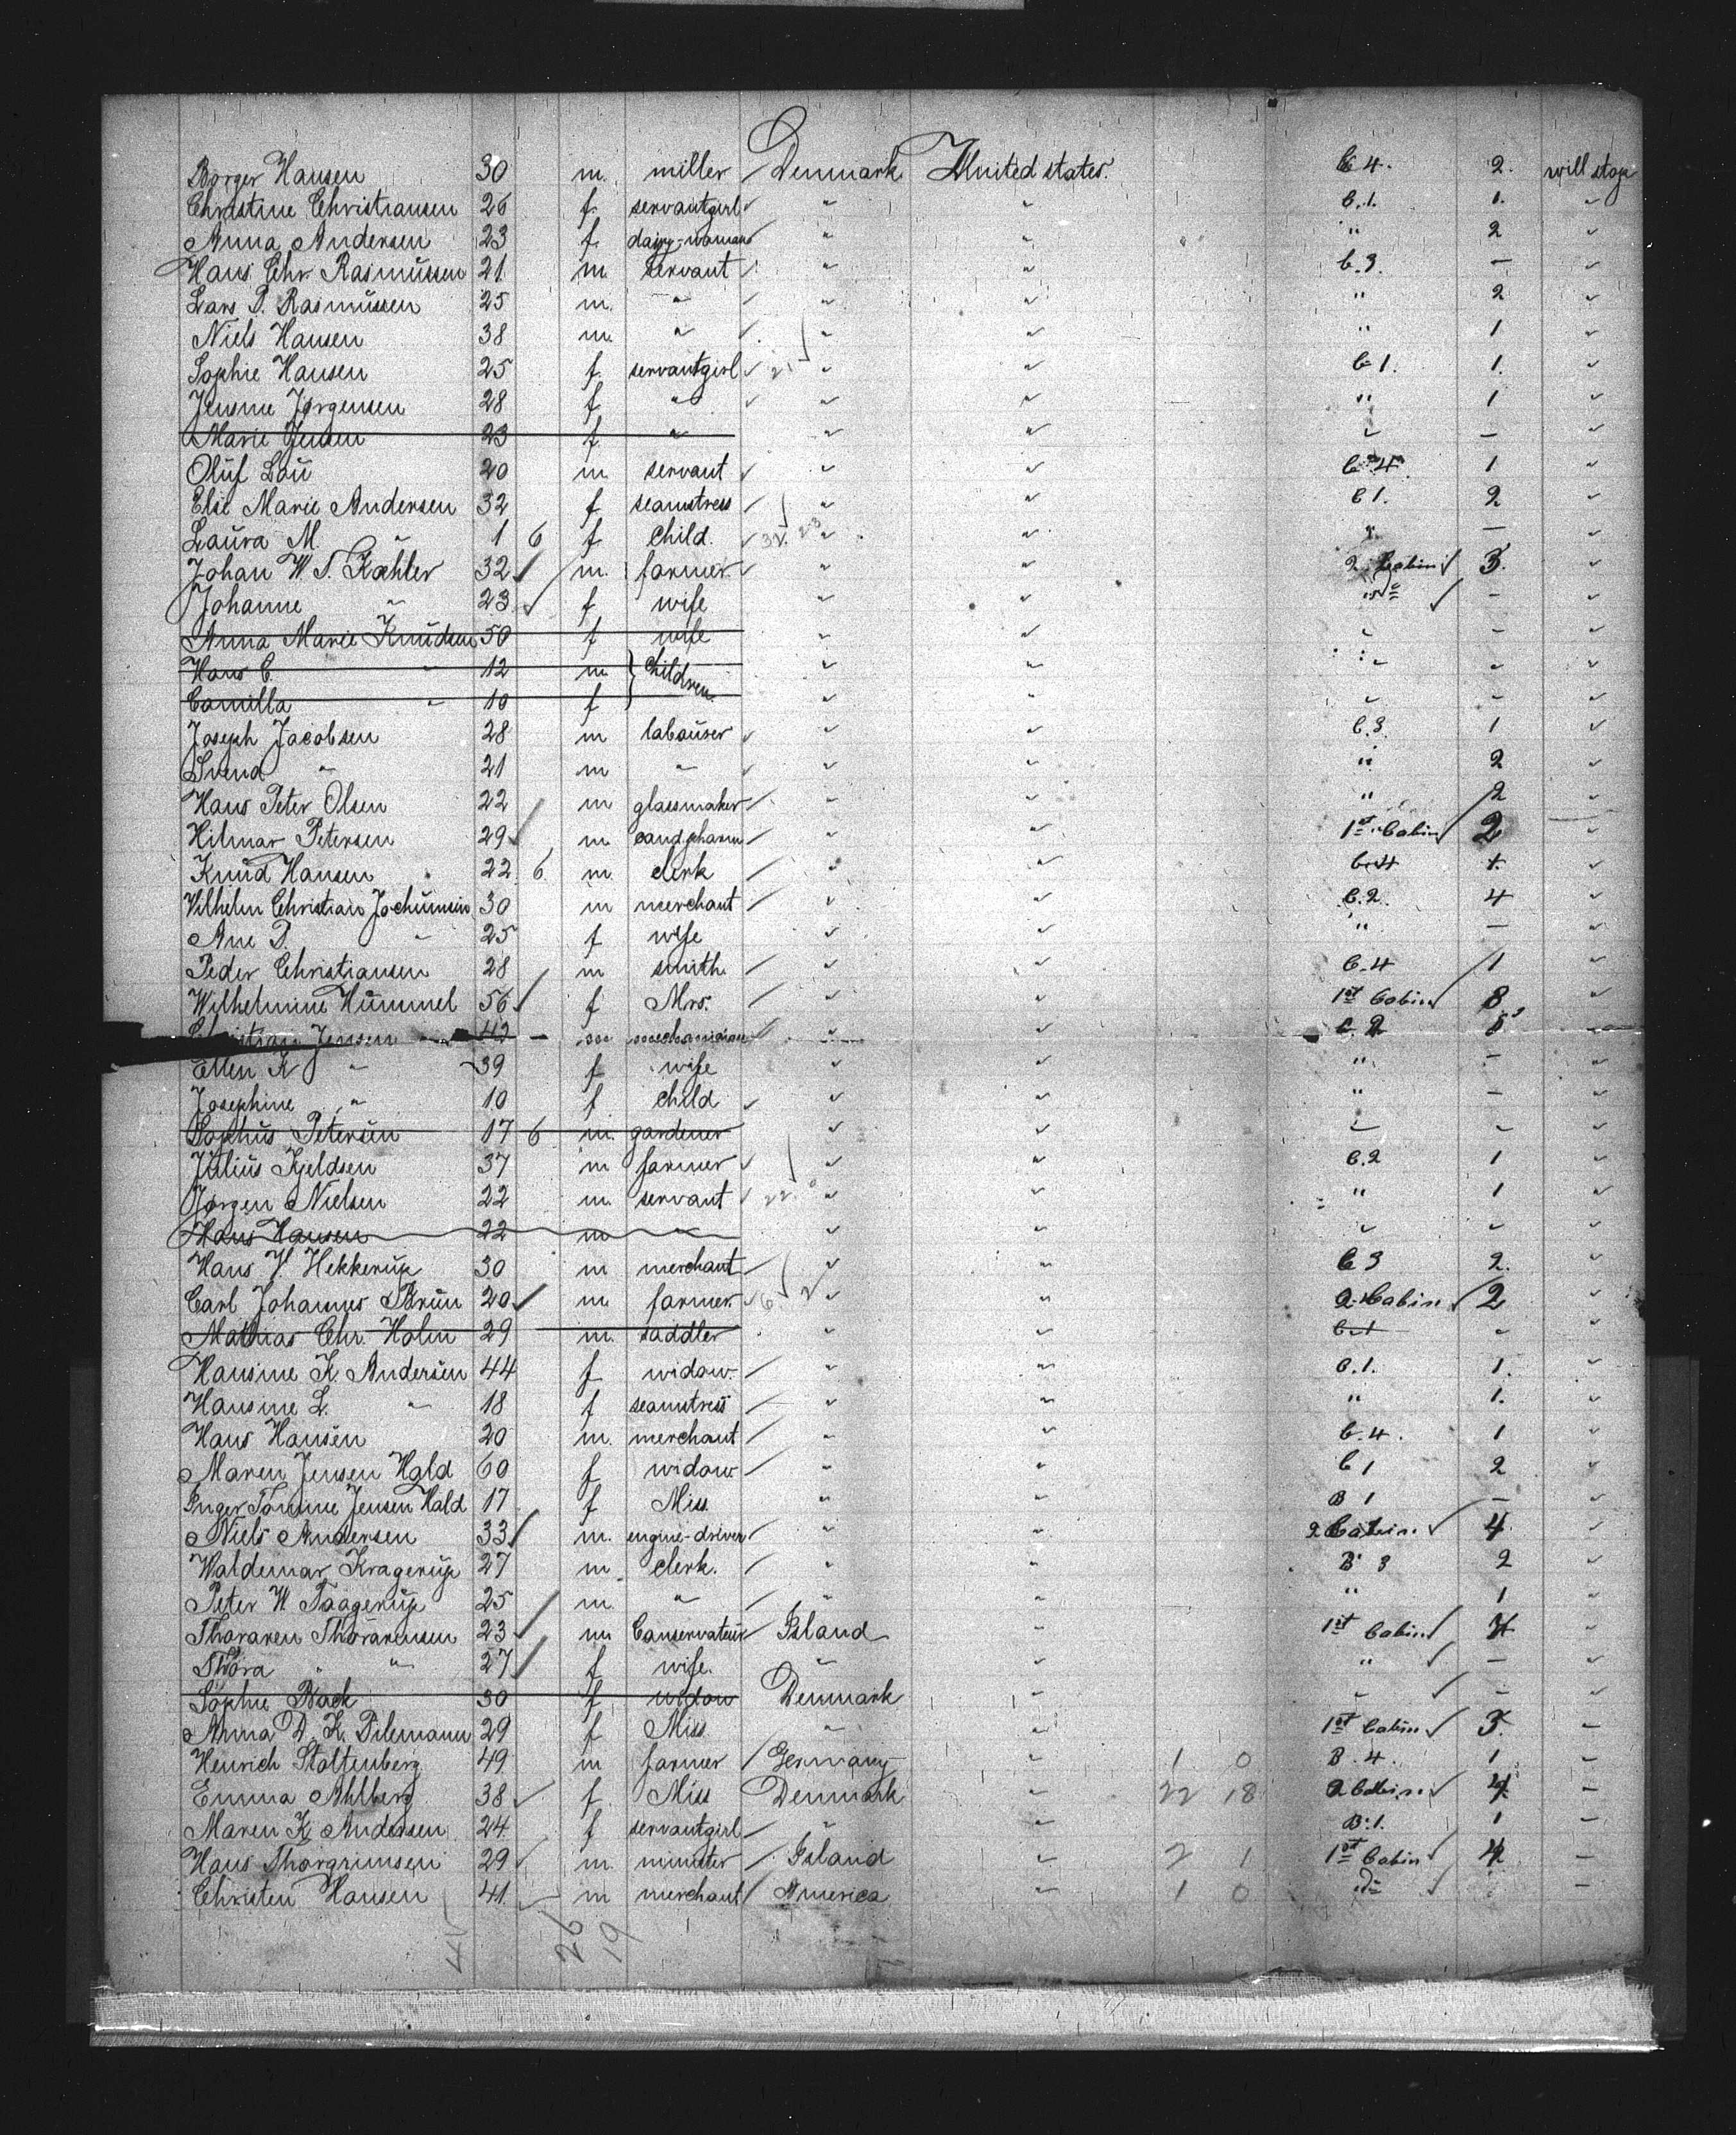 Borger Hansen 30 m. miller Denmark United states. C 4. 2. will stop
Christine Christiansen 26 f. servantgirl " " C. 1. 1. "
Anna Andersen 23 f. dairy-woman " " " 2 "
Hans Chr. Rasmussen 21 m servant " " C. 3. — "
Lars P. Rasmussen 25 m. " " " " 2 "
Niels Hansen 38 m. " " " " 1 "
Sophie Hansen 25 f. servantgirl " " C 1. 1. "
Jensine Jørgensen 28 f. " " " " 1 "
Marie Jensen 23 f. " " " " — "
Oluf Lau 20 m. servant " " C. 4. 1 "
Else Marie Andersen 32 f seamstress " " C 1. 2 "
Laura M. " 1 6 f child. " " " — "
Johan W. S. Koehler 32 m. farmer " " 2 Cabin 3. "
Johanne " 23 f wife " " " — "
Anna Marie Knudsen 50 f wife " " " — "
Hans C. " 12 m } children " " " " "
Camilla " 10 f " " " — "
Joseph Jacobsen 28 m labourer " " C. 3 1 "
Svend " 21 m " " " " 2 "
Hans Peter Olsen 22 m glassmaker " " " 2 "
Hilmar Petersen 29 m cand. pharm " " 1st Cabin 2 "
Knud Hansen 22 6 m. clerk " " C. 4 1. "
Vilhelm Christian Jochumsen 30 m merchant " " C. 2. 4 "
Ane P. " 25 f wife " " " — "
Peder Christiansen 28 m smith " " C. 4 1 "
Wilhelmine Hummel 56 f Mrs. " " 1st Cabin 8 "
Christian Jensen 42 — m mechanician " " C. 2 5 "
Ellen K " 39 f wife " " " — "
Josephine " 10 f child " " " — "
Sophus Petersen 17 6 m. gardener " " " " "
Julius Kjeldsen 37 m farmer " " C. 2 1 "
Jørgen Nielsen 22 m. servant " " " 1 "
Hans Hansen 22 m " " " " " "
Hans V. Hekkerup 30 m merchant " " C 3 2. "
Carl Johannes Bruun 20 m farmer " " 2 Cabin 2 "
Mathias Chr. Holm 29 m. saddler " " C. 1 " "
Hansine K. Andersen 44 f widow. " " C. 1. 1. "
Hansine L. " 18 f seamstress " " " 1. "
Hans Hansen 20 m. merchant " " C. 4. 1 "
Maren Jensen Hald 60 f widow " " C 1 2 "
Inger Tomine Jensen Hald 17 f Miss " " B 1 — "
Niels Andersen 33 m. engine-driver " " 2 Cabin 4. "
Waldemar Kragerup 27 m. clerk. " " B 3 2 "
Peter W. Taagerup 25 m. " " " " 1 "
Thoraren Thorarensen 23 m Conservateur Island " 1st Cabin 4 "
Thora " " 27 f wife. " " " — "
Sophie Back 30 f widow Denmark " " — "
Anna D. K. Pilemann 29 f Miss " " 1st Cabin 3. "
Henrich Stoltenberg 49 m farmer Germany " 1 0 B. 4. 1 "
Emma Ahlberg 38 f. Miss Denmark " 22 18 2 Cabin 4. "
Maren K. Andersen 24 f servantgirl " " B. 1. 1 "
Hans Thorgrimsen 29 m. minister Island " 2 1 1st Cabin 4 "
Christen Hansen 41. m merchant America " 1 0 do "
26
19